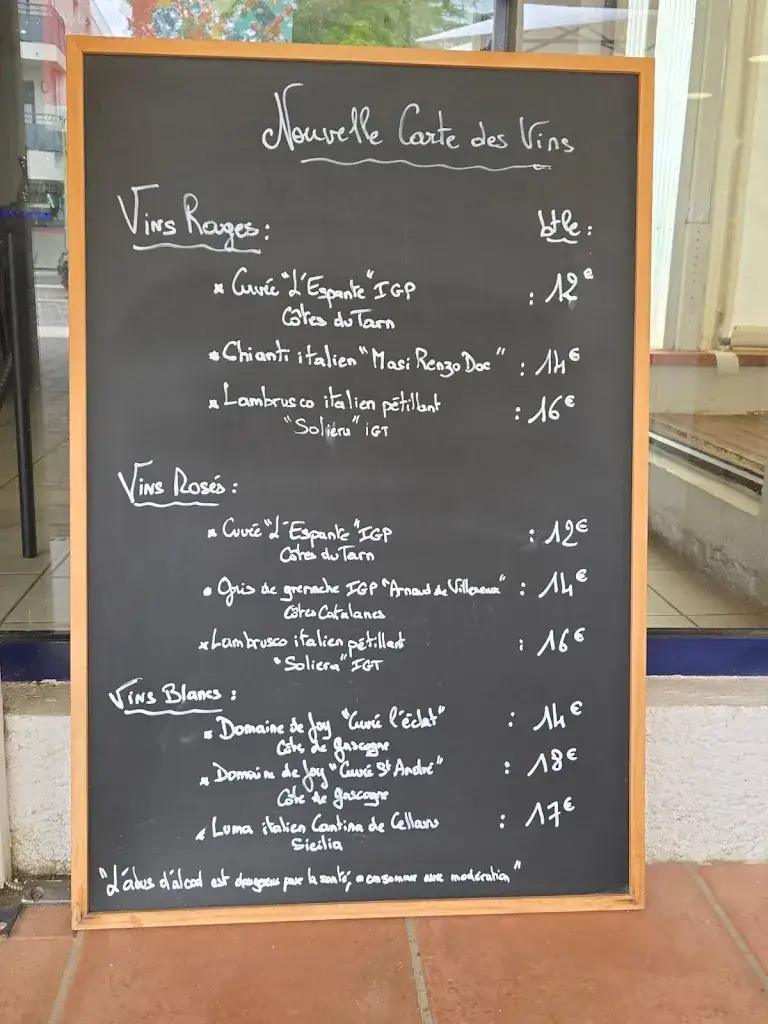 Nouvelle Carte des Vins
Vins Rouges: btle:
* Cuvée "L'Espante" IGP : 12€
Côtes du Tarn
* Chianti italien "Masi Renzo Doc" : 14€
* Lambrusco italien pétillant : 16€
"Soliera" IGT
Vins Rosés:
* Cuvée "L'Espante" IGP : 12€
Côtes du Tarn
• Gris de grenache IGP "Arnaud de Villeneuve" : 14€
Côtes Catalanes
* Lambrusco italien pétillant : 16€
"Soliera" IGT
Vins Blancs:
* Domaine de Joy "Cuvée l'éclat" : 14€
Côte de Gascogne
* Domaine de Joy "Cuvée St André" : 18€
Côte de Gascogne
* Luma italien Cantina de Cellaro : 17€
Sicilia
"L'abus d'alcool est dangereux pour la santé, à consommer avec modération"